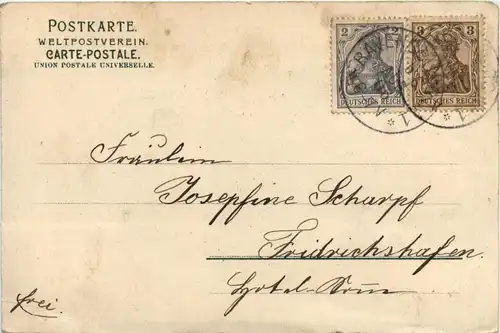 POSTKARTE.
WELTPOSTVEREIN.
CARTE-POSTALE.
UNION POSTALE UNIVERSELLE.
2 2
DEUTSCHES REICH
3 3
DEUTSCHES REICH
Fräulein
Josephine Scharpf
Fridrichshafen
Hotel
frei.